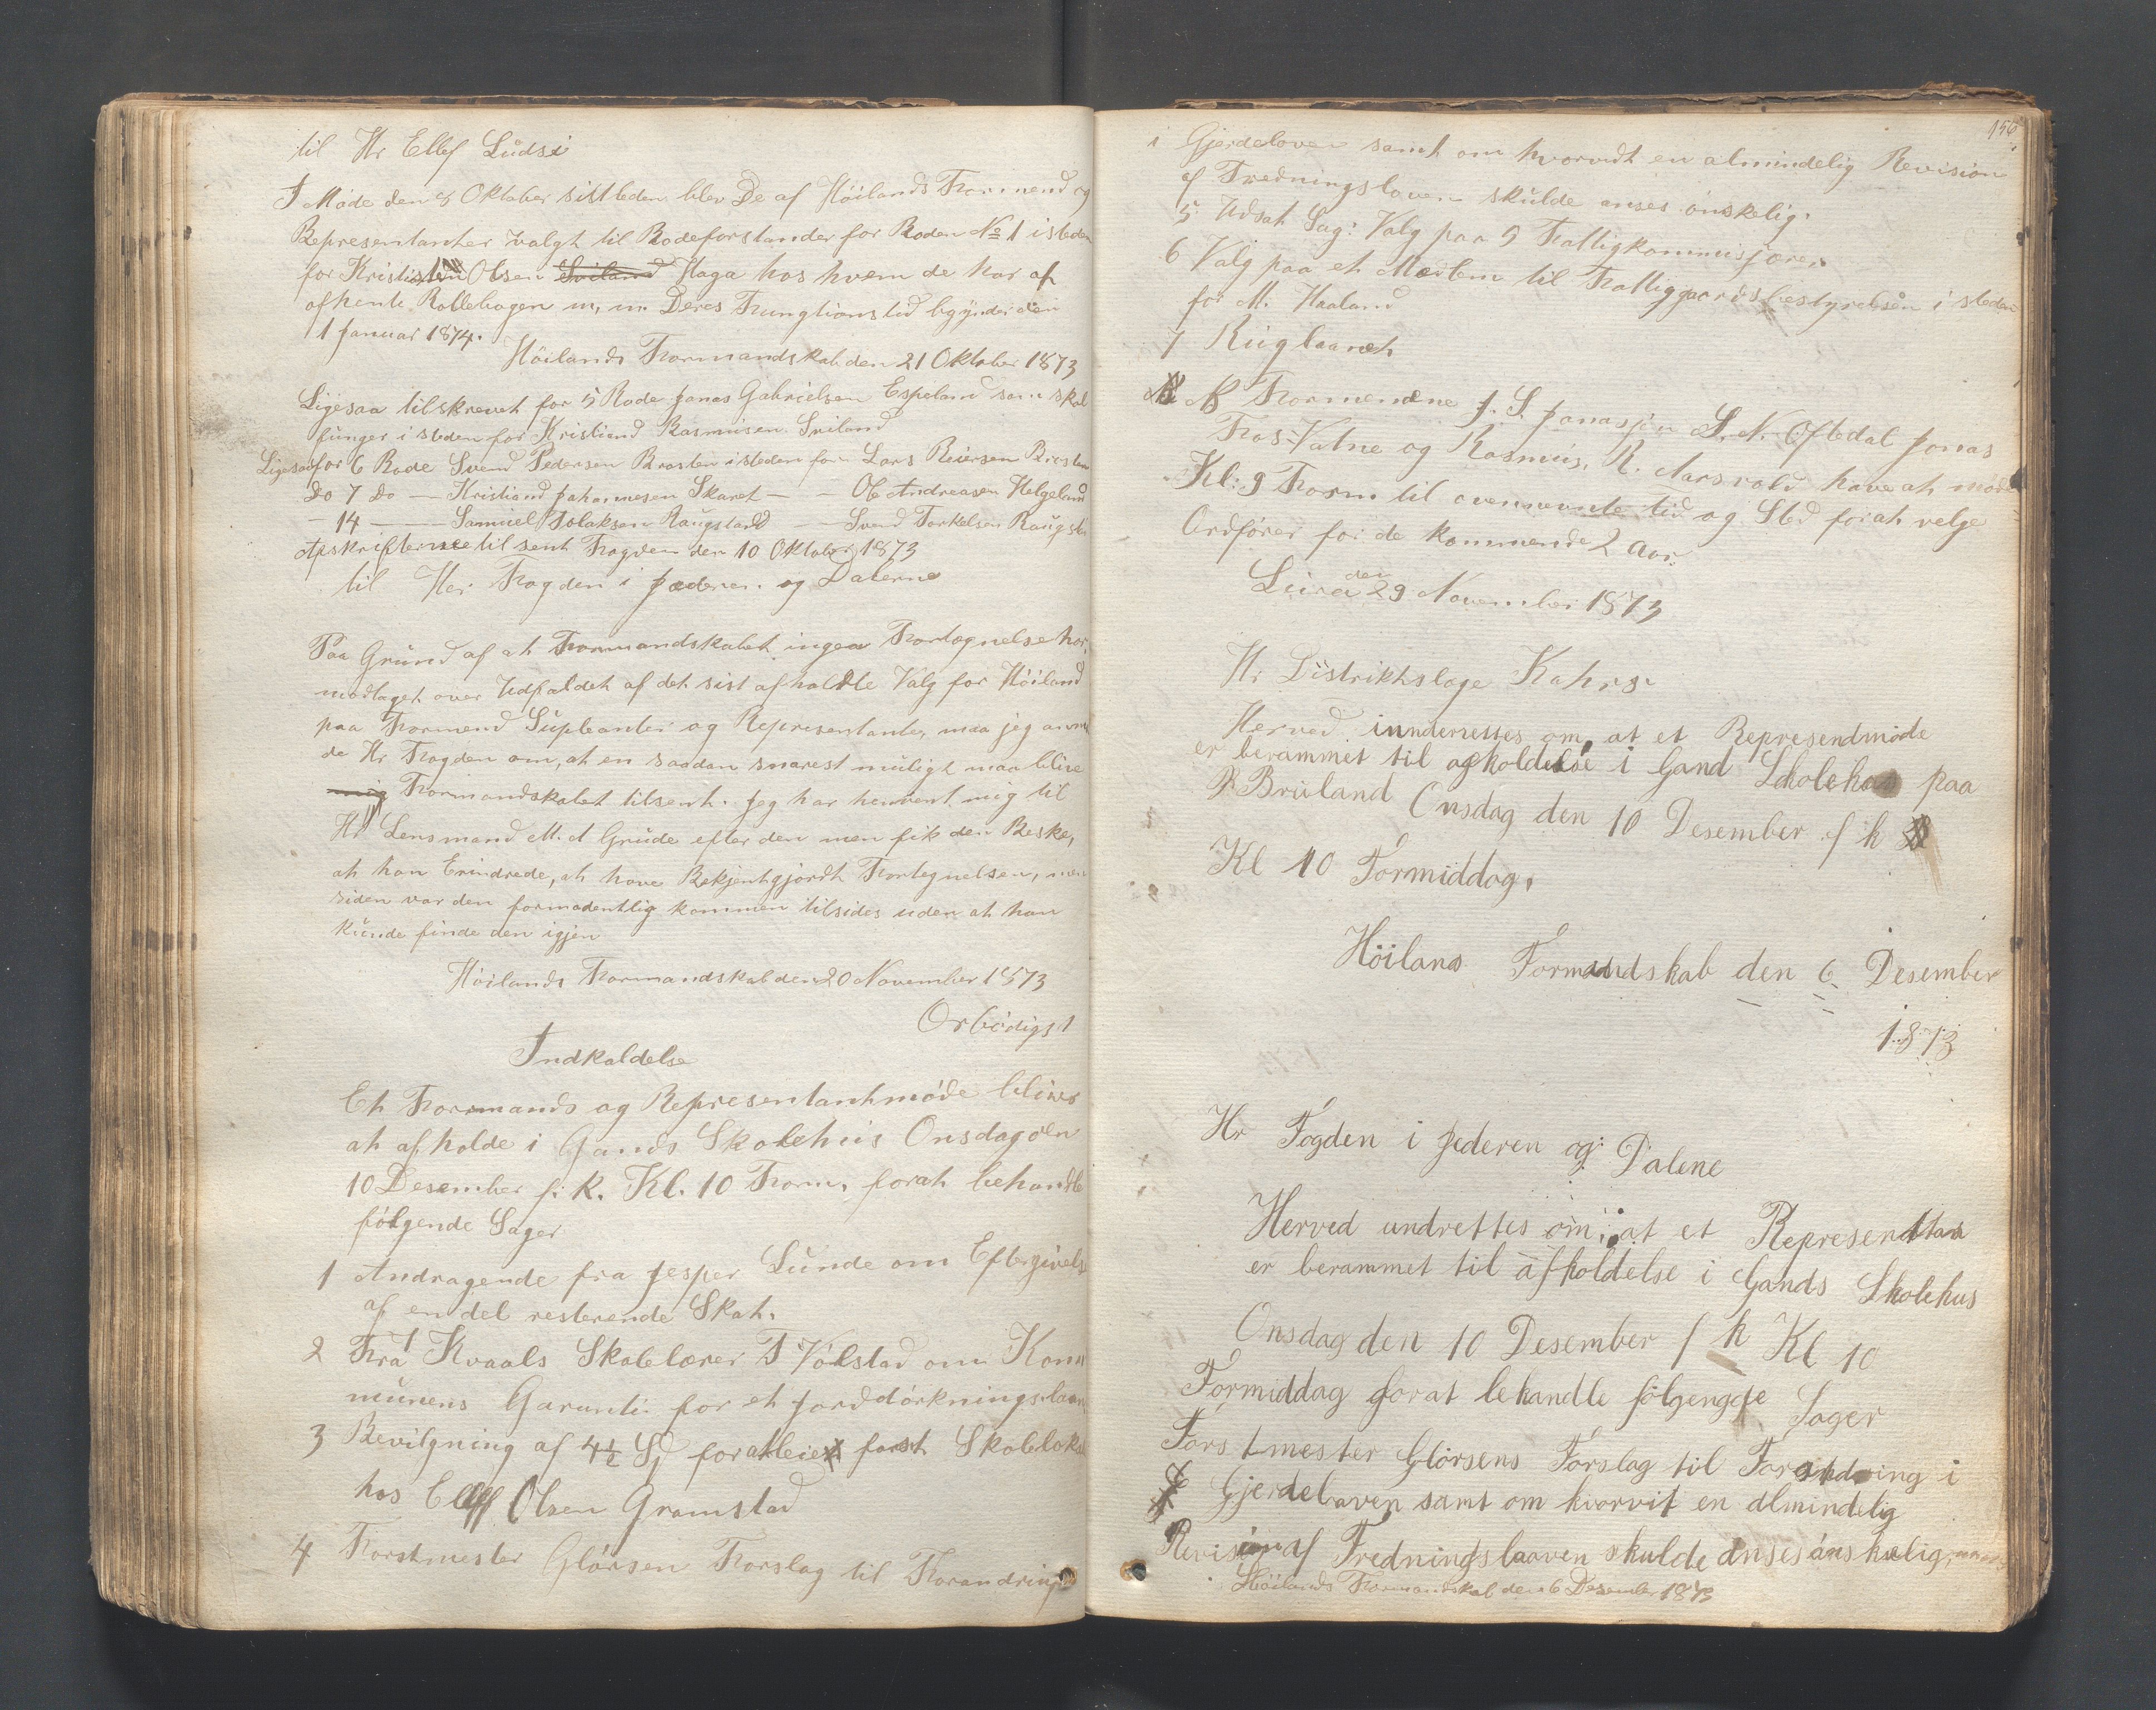 til Hr Ellef Ludsi
I Møde den 8 Oktober sistleden blev De af Höilands Formend og
Representanter valgt til Rodeforstander for Roden No 1 isteden
for Kristian Olsen Sviland Haga hos hvem de har af
afhente Rollebogen m, m. Deres Fungtions tid begynder den
1 Januar 1874.
Höilands Formandskab den 21 Oktober 1873
Ligesaa tilskrevet for 5 Rode Jonas Gabrielsen Espeland som skal
funger i steden for Kristiand Rasmusen Sviland
Ligesaa for 6 Rode Svend Pedersen Brasten isteden for Lars Reiersen Brasten
Do 7 do — Kristiand Johannesen Skaret — - Ole Andreasen Helgeland
- 14 — Samuel Tolaksen Raugstad — Svend Torkelsen Raugsta
Apskrifterne til sent Fogden den 10 Oktober 1873
til Her Fogden i Jæderen og Dalerne
Paa Grund af at Formandskabet ingen Fortegnelse har
modtaget over Udfaldet af det sist afholdte Valg for Höiland
paa Formend Supleanter og Representanter, maa jeg anmo
de Hr Fogden om, at en saadan snarest muligt maa blive
mig Formandskabet tilsent. Jeg har henvent mig til
Hr Lensmand M. A Grude efter den men fik den Beske,
at han Erindrede, at have Bekjentgjordt Fortegnelsen, men
siden var den formodentlig kommen tilsides uden at han
kunde finde den igjen
Höilands Formandskab den 20 November 1873
Örbödigst
Indkaldelse
Et Formands og Representantmöde bliver
at afholde i Gands Skolehus Onsdag den
10 Desember f. k. Kl. 10 Form. forat behandle
fölgende Sager
1 Andragende fra Jesper Lunde om Eftergivels
af en del resterende Skat.
2 Fra Kvaals Skolelærer T Völstad om Kom
munens Garanti for et Jorddörkningslaan
3 Bevilgning af 4½ Sp for atleie fast Skolelokal
hos Elleff Olsen Gramstad
4 Forstmester Glörsen Forslag til Forandring
156
i Gjerdeloven samt om hvorvidt en almindelig Revision
af Fredningsloven skulde anses önskelig.
5 Udsat Sag: Valg paa 5 Fattigkommisjærer
6 Valg paa et Medlem til Fattiggaardsbestyrelsen i steden
for M. Haaland
7 Ruglaanet
NB Formendene J. S. Jonassen S. N. Oftedal Jonas
Fos-Vatne og Rasmus. R. Aarsvold have at møde
Kl: 9 Form til ovennevnte tid og Sted forat velge
Ordförer for de kommende 2 Aar.
Leira den 29 November 1873
Hr Distriktslæge Kahrs.
Herved innderettes om, at et Represendmöde
er berammet til afholdelse i Gand Skolehus paa
Bruland Onsdag den 10 Desember f k
Kl 10 Formiddag.
Höilans Formandskab den 6 Desember
1873
Hr Fogden i Jederen og Dalene
Herved undrettes om, at et Representtan
er berammet til afholdelse i Gands Skolehus
Onsdag den 10 Desember f k Kl 10
Formiddag forat behandle fölgengde Sager
Forstmester Glörsens Forslag til Forandring i
Gjerdelaaven samt om hvorvit en almindelig
Revision af Fredningslaaven skulde anses önskelig
Höilands Formandskab den 6 Desember 1873